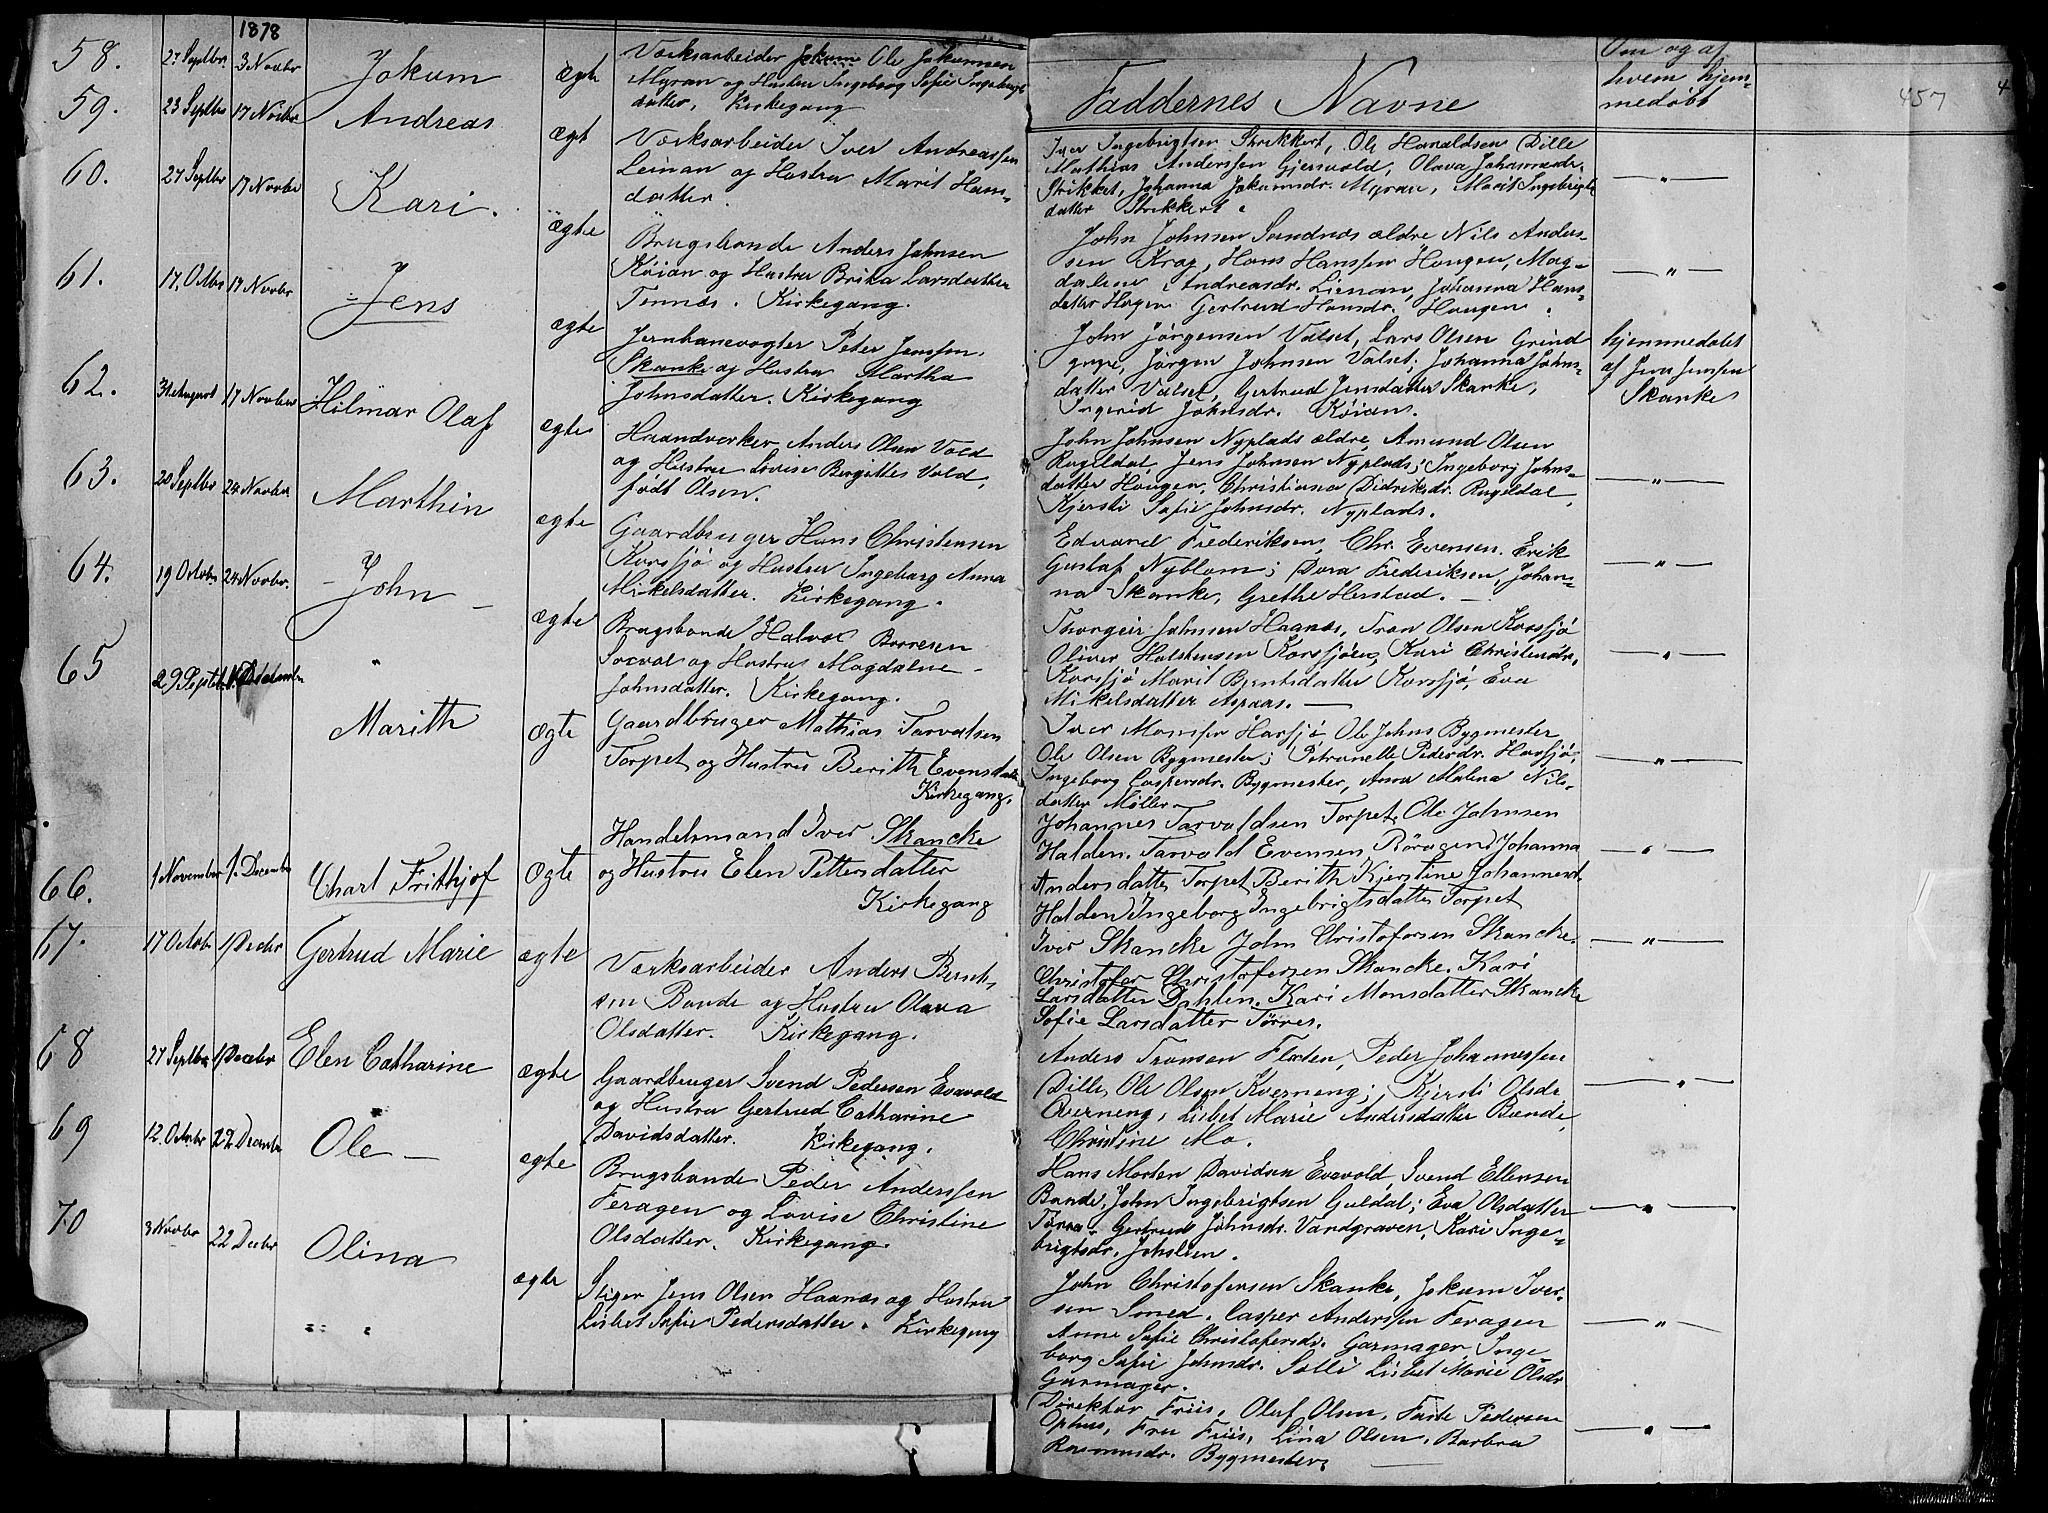 1878
58. 27 Septbr 3 Novbr Jokum ægte Værksarbeider Jokum Ole Jokumsen
Myran og Hustru Ingeborg Sofie Ingebrigts
datter. Kirkegang
59. 23 Septbr 17 Novbr Andreas ægt Værksarbeider Iver Andreassen
Leinan og Hustru Marit Hans-
datter.
60. 27 Septbr 17 Novbr Kari. ægte Brugsbonde Anders Johnsen
Køian og Hustru Brita Larsdatter
Tennæs. Kirkegang.
61. 17. Octbr 17 Novbr Jens ægte Jernbanevogter Peter Jenssen
Skanke og Hustru Martha
Johnsdatter. Kirkegang
62. 31 August 17 Novbr Hilmar Olaf ægte Haandværker Anders Olsen Vold
og Hustru Lovise Birgitte Vold,
født Olsen.
63. 20 Septbr 24 Novbr Marthin ægte Gaardbruger Hans Christensen
Korssjø og Hustru Ingeborg Anna
Mikelsdatter. Kirkegang.
64. 19 Octobr 24 Novbr. John ægte Brugsbonde Halvor Borresen
Sorval og Hustru Magdalene
Johnsdatter. Kirkegang.
65 29 Septbr 1. December Marith Ægte Gaardbruger Mathias Tarvalsen
Torpet og Hustru Berith Evensdatter
Kirkegang.
66. 1 November 1. December Charl Frithjof Ægte Handelsmand Iver Skancke
og Hustru Elen Pettersdatter
Kirkegang
67. 17 Octobr 1/ Decbr Gertrud Marie ægte Værksarbeider Anders Bersv-
sen Bonde og Hustru Olava
Olsdatter. Kirkegang.
68 27 Septbr 1/ Decebr Elen Catharine ægte Gaardbruger Svend Pedersen Evavold
og Hustru Gertrud Catharine
Davidsdatter. Kirkegang.
69 12. Octobr 22 Decembr Ole ægte Brugsbonde Peder Anderssen
Feragen og Lovise Christine
Olsdatter. Kirkegang.
70 3 Novbr 22 Decbr Olina ægte Stiger Jens Olsen Haanæs og Hustru
Lisbet Sofie Pedersdatter. Kirkegang
Faddernes Navne
Om og af
hvem hjem-
medøbt
457
4
Iver Ingebrigtsen Strikkert, Ole Haraldsen Dille
Mathias Anderssen Gjersvold, Olava Johannesdr.
Strikket, Johanna Jokumsdr. Myran, Marit Ingebrigts
datter Strikkert.
John Johnsen Sundnes ældre Nils Anders-
sen Krag, Hans Hanssen Hougen, Mag-
dalene Andreasdr. Lienan, Johanna Hans-
datter Hagen Gertrud Hansdr. Hougen.
John Jørgensen Valset, Lars Olsen Grind
gure, Jørgen Johnsen Valset; Johanna Johns-
datter Valset, Gertrud Jensdatter Skanke,
Ingerid Johnsdr. Køian.
hjemmedøbt
af Jens Jensen
Skanke
John Johnsen Nyplads ældre, Amund Olsen
Rugldal, Jens Johnsen Nyplads; Ingeborg Johns-
datter Hougen, Christiana Didriksdr. Rugeldal,
Kjersti Sofie Johnsdr. Nyplads.
Edvard Frederiksen, Chr. Evensen. Erik
Gustaf Nyblom; Dora Frederiksen, Johan-
na Skanke, Grethe Herstad.
Thorgeir Johnsen Haanæs, Tron Olsen Korssjø
Oliver Halstensen Korssjøen, Kari Christensdr.
Korssjø Marit Berntsdatter Korssjø, Eva
Mikelsdatter Aspaas.
Iver Monssen Harsjø Ole Johns Bygmester
Ole Olsen Bygmester; Petronelle Pedersdr. Harsjø,
Ingeborg Caspersdr. Bygmester, Anna Malena Nils-
datter Møller
Johannes Tarvaldsen Torpet, Ole Johnsen
Halden. Tarvald Evensen Røragen Johanna
Andersdatter Torpet Berith Kjerstine Johannesd.
Halden Ingeborg Ingebrigtsdatter Torpet
Iver Skancke John Christofersen Skancke.
Christofer Christofersen Skancke. Kari
Larsdatter Dahlen. Kari Monsdatter Skancke
Sofie Larsdatter Tørres.
Anders Tronsen Floten, Peder Johannessen
Dille, Ole Olsen Kverneng; Kjersti Olsdr
Qverneng, Lisbet Marie Andersdatter Bonde,
Christine Mo.
Hans Morten Davidsen Evavold Svend Ellensen
Bonde, John Ingebrigtsen Guldal; Eva Olsdatter
Torra. Gertrud Johnsdr. Vandgraven, Kari Inge-
brigtsdr. Johslien.
John Christofersen Skanke, Jokum Iver-
sen Smed. Casper Anderssen Feragen
Anne Sofie Christofersdr. Garmager Inge-
borg Sofie Johnsdr. Solli Lisbet Marie Olsdr
Garmager.
Direktør Friis, Olaf Olsen. Faste Pedersen
Ophus, Fru Friis, Lina Olsen. Barbra
Rasmusdr. Bygmester.